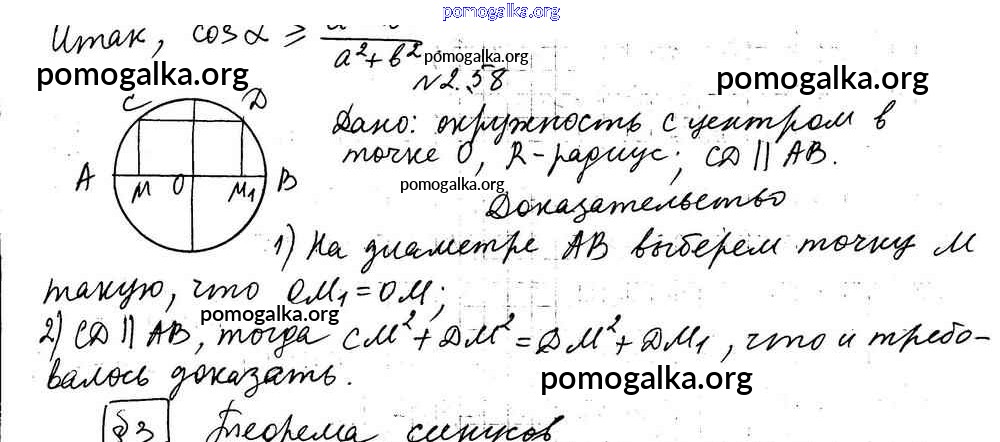 pomogalka.org
Итак, cos α ≥
a² + b²
pomogalka.org
pomogalka.org
pomogalka.org
N 2.58
C D
Дано: окружность с центром в
точке O, R - радиус; CD || AB.
A M O M₁ B
pomogalka.org
Доказательство
1) На диаметре AB выберем точку M
такую, что OM₁ = OM;
pomogalka.org
2) CD || AB, тогда CM² + DM² = DM² + DM₁, что и требо-
валось доказать.
pomogalka.org
§3 Теорема синусов